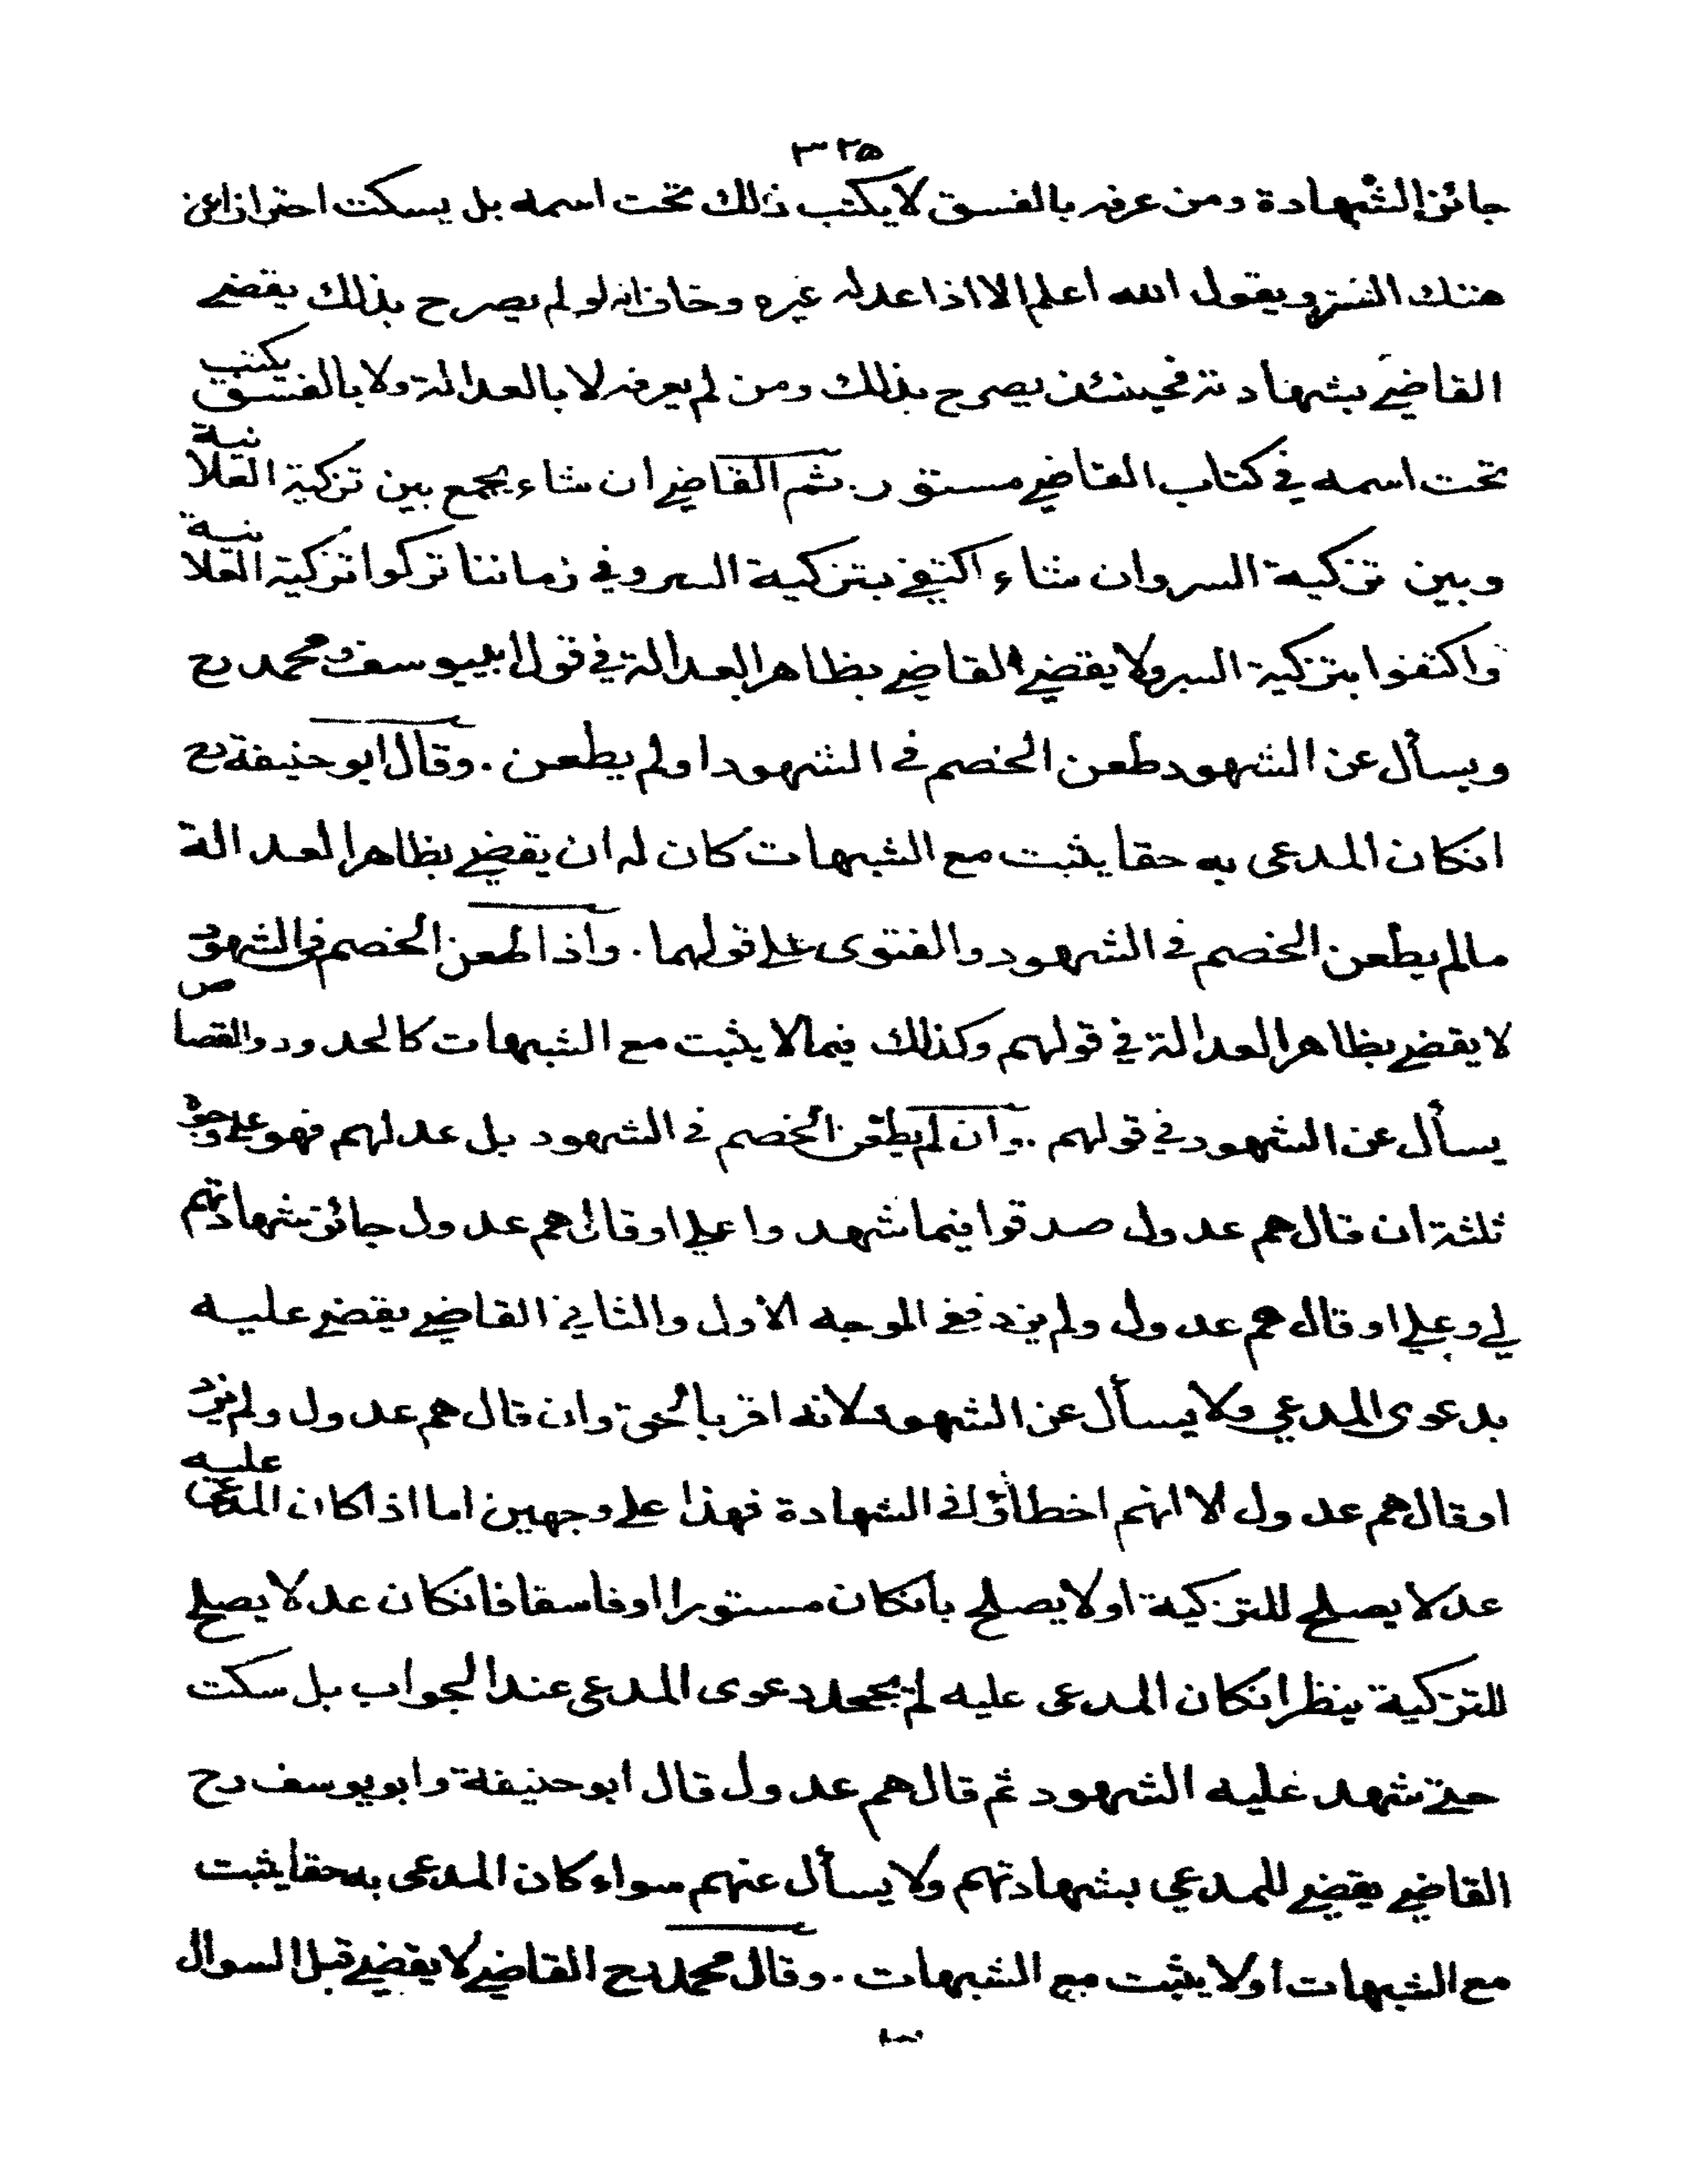 ٣٢٥
جائز الشهادة ومن عرفه بالفسق لا يكتب ذلك تحت اسمه بل يسكت احترازا عن
هتك الستر ويقول الله اعلم الا اذا عدله غيره وخاف انه لو لم يصرح بذلك يقضي
القاضي بشهادته فحينئذ يصرح بذلك ومن لم يعرفه لا بالعدالة ولا بالفسق يكتب
تحت اسمه في كتاب القاضي مستور. ثم القاضي ان شاء يجمع بين تزكية العلانية
وبين تزكية السر وان شاء اكتفى بتزكية السر وفي زماننا تركوا تزكية العلانية
واكتفوا بتزكية السر ولا يقضي القاضي بظاهر العدالة في قول ابي يوسف ومحمد رح
ويسأل عن الشهود طعن الخصم في الشهود او لم يطعن. وقال ابو حنيفة رح
انكان المدعى به حقا يثبت مع الشبهات كان له ان يقضي بظاهر العدالة
مالم يطعن الخصم في الشهود والفتوى على قولهما. واذا طعن الخصم في الشهود
لا يقضي بظاهر العدالة في قولهم وكذلك فيما لا يثبت مع الشبهات كالحدود والقصاص
يسأل عن الشهود في قولهم. وان لم يطعن الخصم في الشهود بل عدلهم فهو على وجوه
ثلثة ان قال هم عدول صدقوا فيما شهدوا علي او قال هم عدول جائز شهادتهم
لي وعلي او قال هم عدول ولم يزد ففي الوجه الاول والثاني القاضي يقضي عليه
بدعوى المدعي ولا يسأل عن الشهود لانه اقر بالحق وان قال هم عدول ولم يزد
او قال هم عدول الا انهم اخطأوا في الشهادة فهذا على وجهين اما اذا كان المدعى عليه
عدلا يصلح للتزكية او لا يصلح بانكان مستورا او فاسقا فانكان عدلا يصلح
للتزكية ينظر انكان المدعى عليه لم يجحد دعوى المدعي عند الجواب بل سكت
حتى شهد عليه الشهود ثم قال هم عدول قال ابو حنيفة وابو يوسف رح
القاضي يقضي للمدعي بشهادتهم ولا يسأل عنهم سواء كان المدعى به حقا يثبت
مع الشبهات او لا يثبت مع الشبهات. وقال محمد رح القاضي لا يقضي قبل السوال